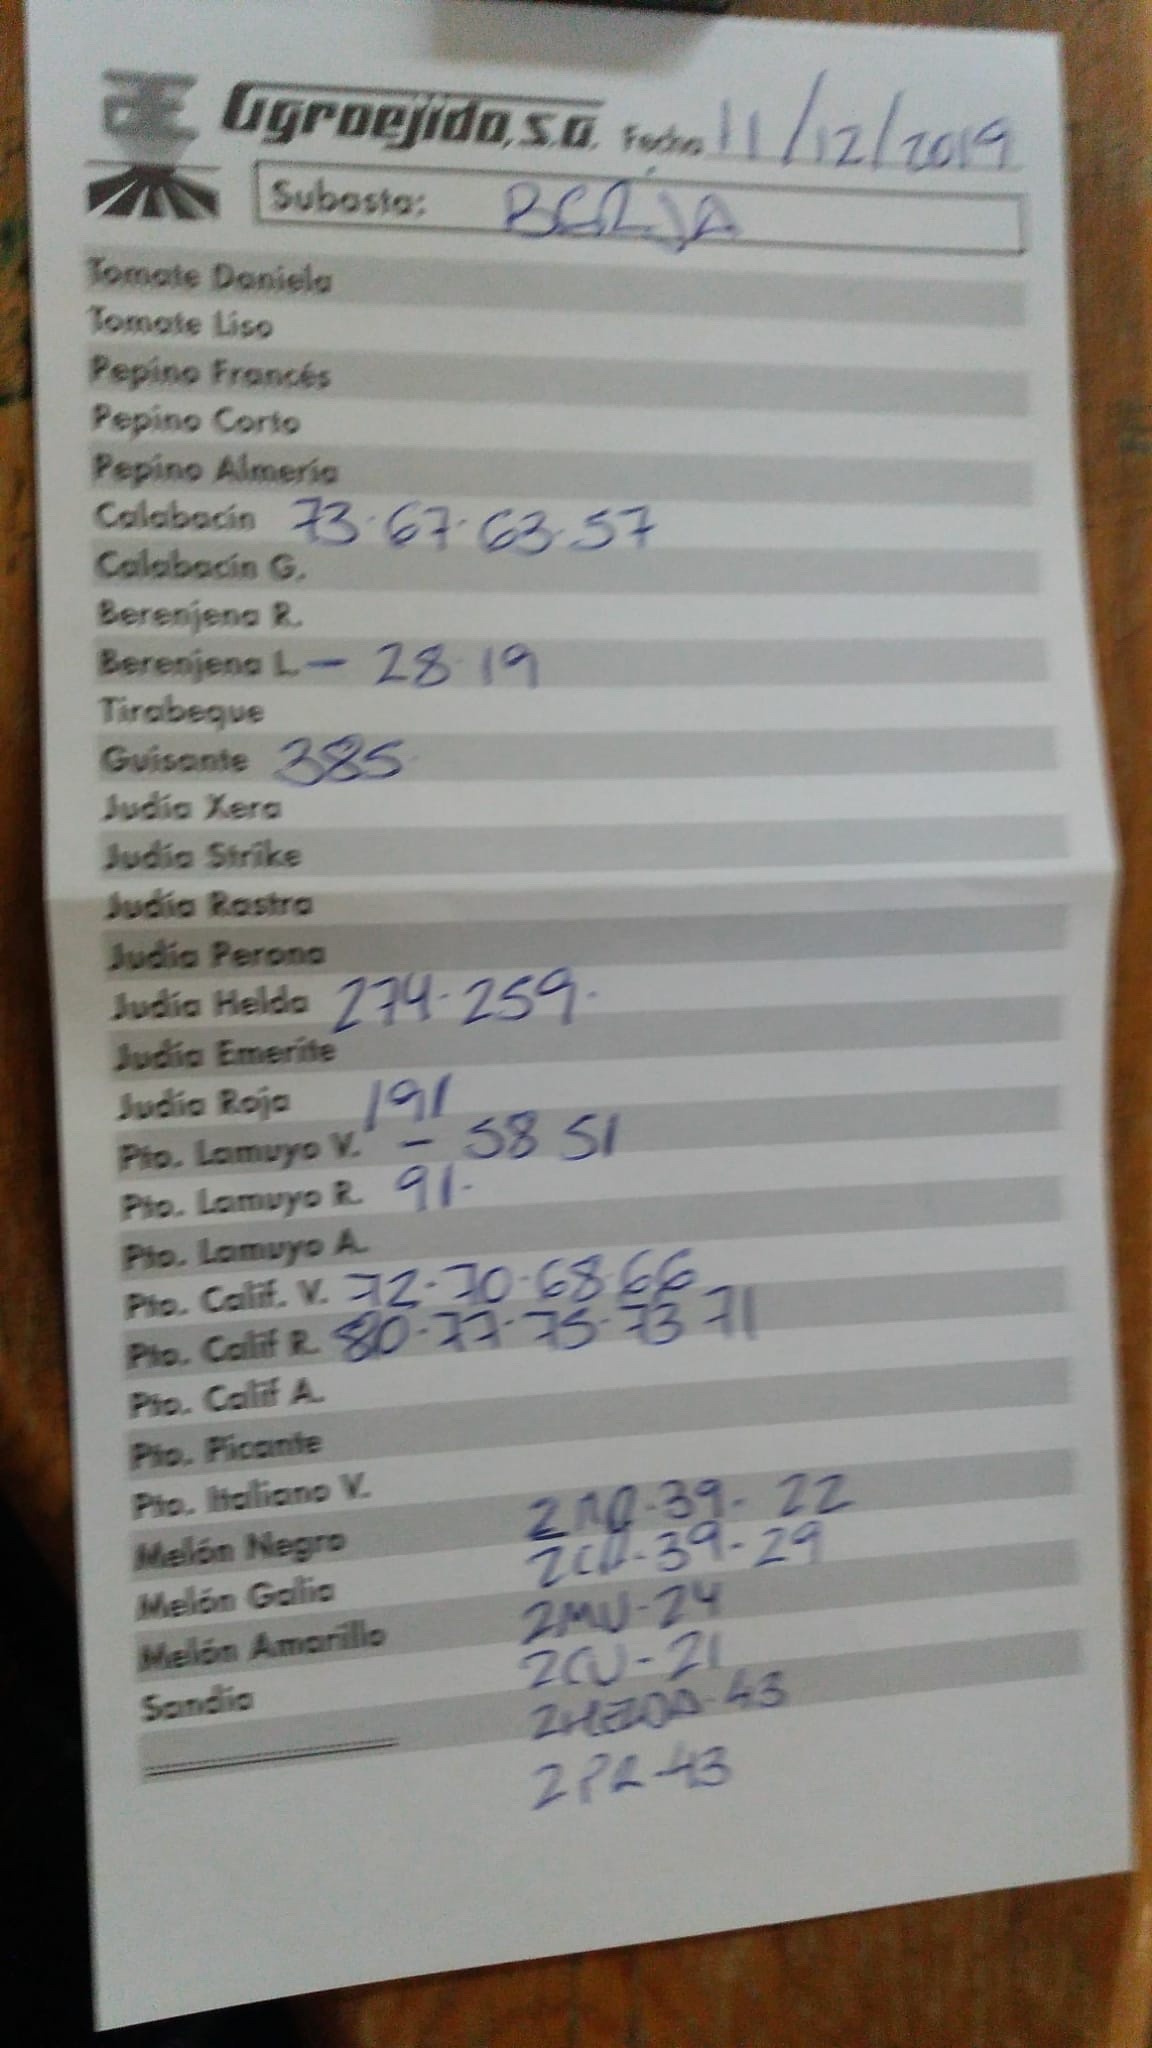 Agroejido, S.A. Fecha 11/12/2019
Subasta: BERJA
Tomate Daniela
Tomate Liso
Pepino Francés
Pepino Corto
Pepino Almería
Calabacín 73-67-63-57
Calabacín G.
Berenjena R.
Berenjena L. - 28-19
Tirabeque
Guisante 385
Judía Xera
Judía Strike
Judía Rastra
Judía Perona
Judía Helda 274-259-
Judía Emerite
Judía Roja 191
Pto. Lamuyo V. - 58 51
Pto. Lamuyo R. 91-
Pto. Lamuyo A.
Pto. Calif. V. 72-70-68-66
Pto. Calif R. 80-77-75-73 71
Pto. Calif A.
Pto. Picante
Pto. Italiano V.
Melón Negro 39-22
Melón Galia 39-29
Melón Amarillo 2MV-24
2CV-21
Sandía 43
2PR-43